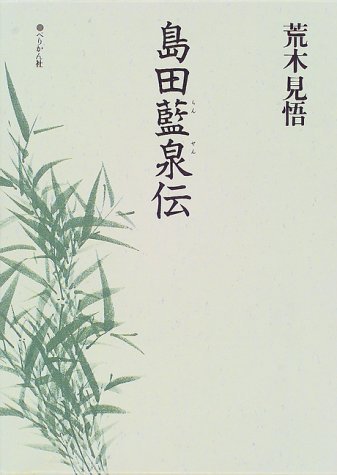 荒木見悟
島田藍泉伝
らんせん
●ぺりかん社